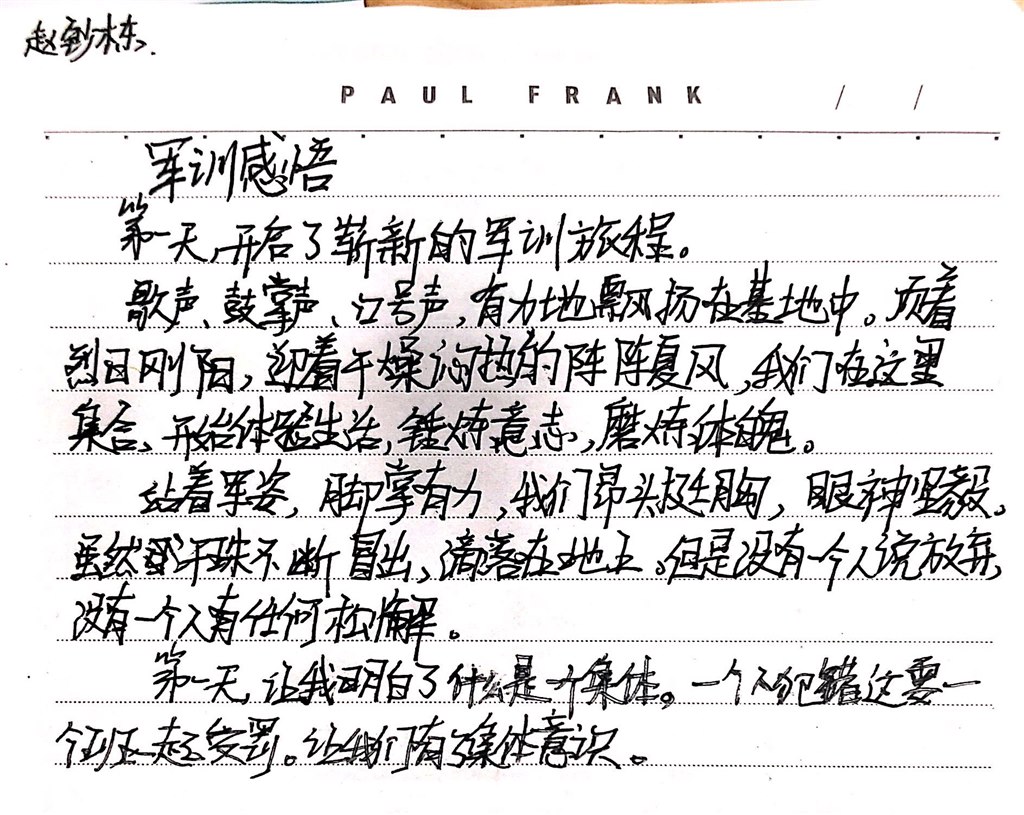 赵
PAUL FRANK / /
军训感悟
第一天,开启了崭新的军训旅程。
歌声、鼓掌声、口号声,有力地飘扬在基地中。顶着
烈日刚阳,迎着干燥闷热的阵阵夏风,我们在这里
集合,开始体验生活,锤炼意志,磨炼体魄。
站着军姿,脚掌有力,我们昂头挺胸,眼神坚毅。
虽然汗珠不断冒出,滴落在地上。但是没有一个人说放弃,
没有一个人有任何松懈。
第一天,让我明白了什么是集体。一个人犯错这要一
个班一起受罚。让我们有了集体意识。